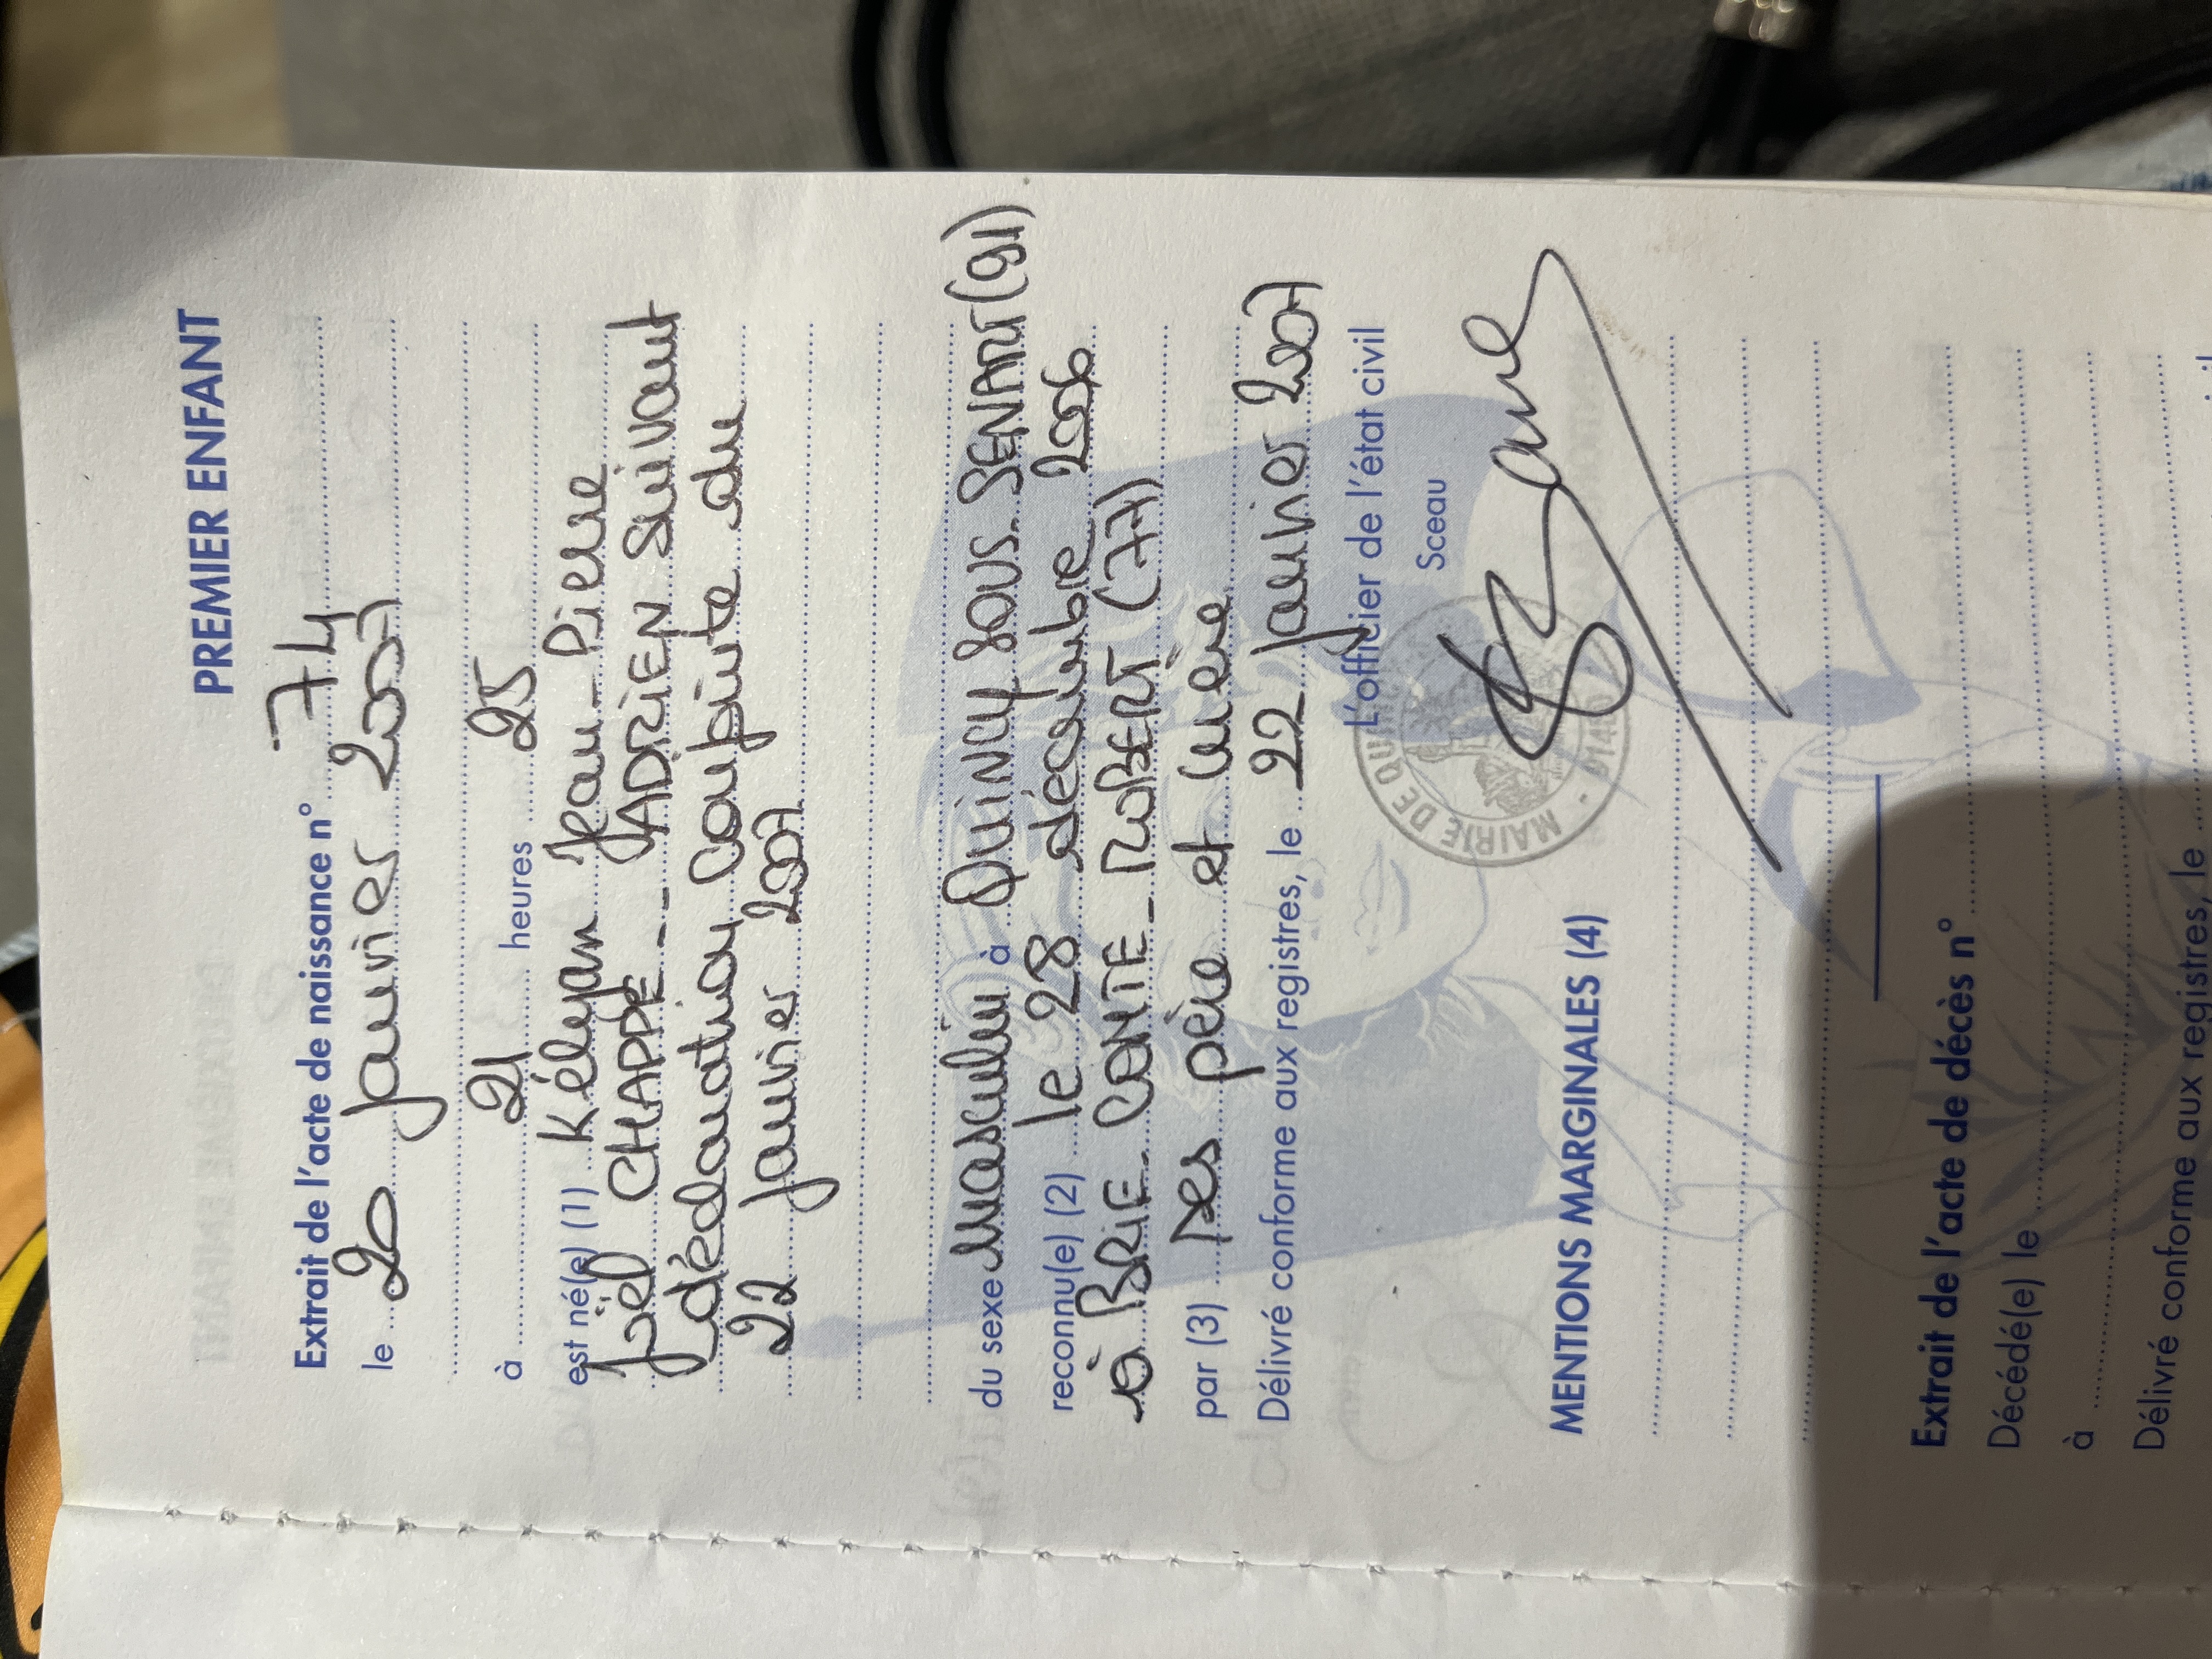 PREMIER ENFANT
Extrait de l'acte de naissance n° 74
le 20 janvier 2007
à 21 heures 25
est né(e) (1) Kélyan Jean-Pierre
Joël CHAPPE -- JADRIEN Suivant
déclaration conjointe du
22 janvier 2007
du sexe masculin à QUINCY SOUS-SENART (91)
reconnu(e) (2) le 28 décembre 2006
à BRIE-COMTE-ROBERT (77)
par (3) ses père et mère
Délivré conforme aux registres, le 22 janvier 2007
L'officier de l'état civil
Sceau
MAIRIE DE QUI
MENTIONS MARGINALES (4)
Extrait de l'acte de décès n°
Décédé(e) le
à
Délivré conforme aux registres, le